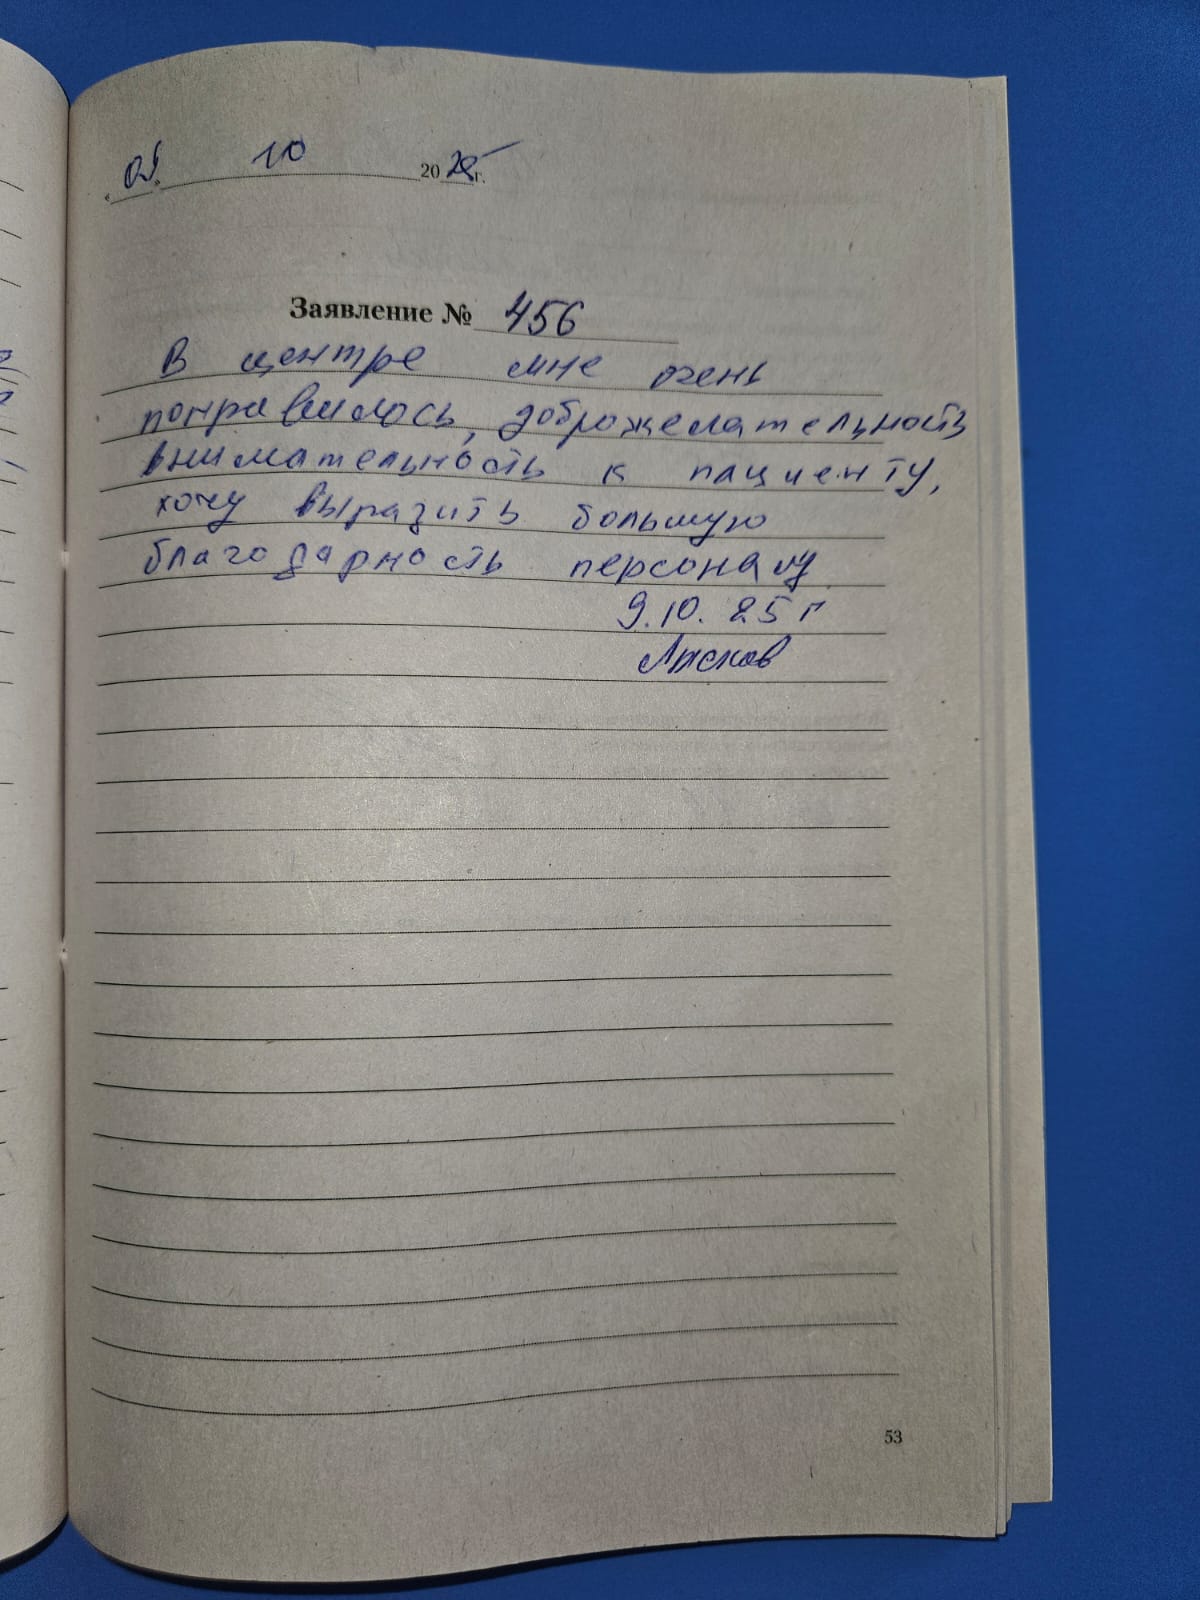 «09» 10 2025 г.
Заявление № 456
В центре мне очень
понравилось, доброжелательность
внимательность к пациенту,
хочу выразить большую
благодарность персоналу
9.10.25 г
53